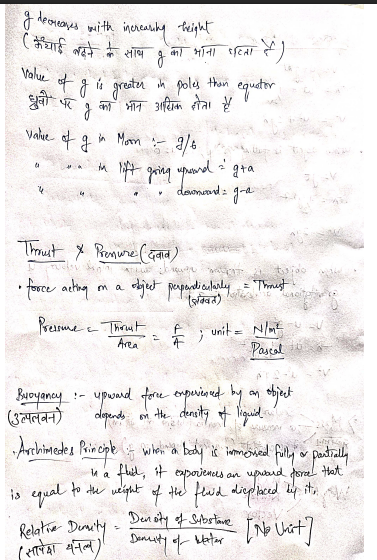 g decreases with increasing height
(ऊँचाई बढ़ने के साथ g का मान घटता है)
Value of g is greater in poles than equator
ध्रुवों पर g का मान अधिक होता है
Value of g in Moon :- g/6
" " " in lift going upward = g+a
" " " " downward = g-a
Thrust & Pressure (दबाव)
• force acting on a object perpendicularly = Thrust
Pressure = Thrust/Area = F/A ; unit = N/m²
Pascal
Buoyancy :- upward force experienced by an object
(उत्पलवन) depends on the density of liquid
• Archimedes Principle :- when a body is immersed fully or partially
in a fluid, it experiences an upward force that
is equal to the weight of the fluid displaced by it.
Relative Density = Density of Substance/Density of Water [No Unit]
(सापेक्ष घनत्व)